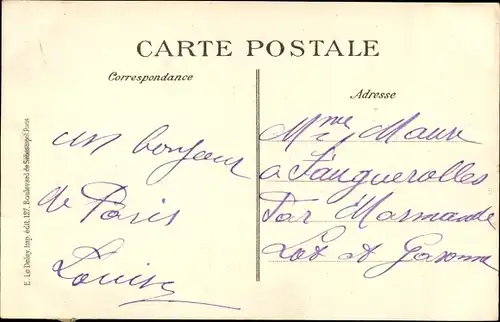 CARTE POSTALE
Correspondance
Adresse
un bonjour
de Paris
Louise
Mme Maure
a Fauguerolles
Par Marmande
Lot et Garonne
E. Le Deley, imp. édit. 127, Boulevard de Sébastopol, Paris